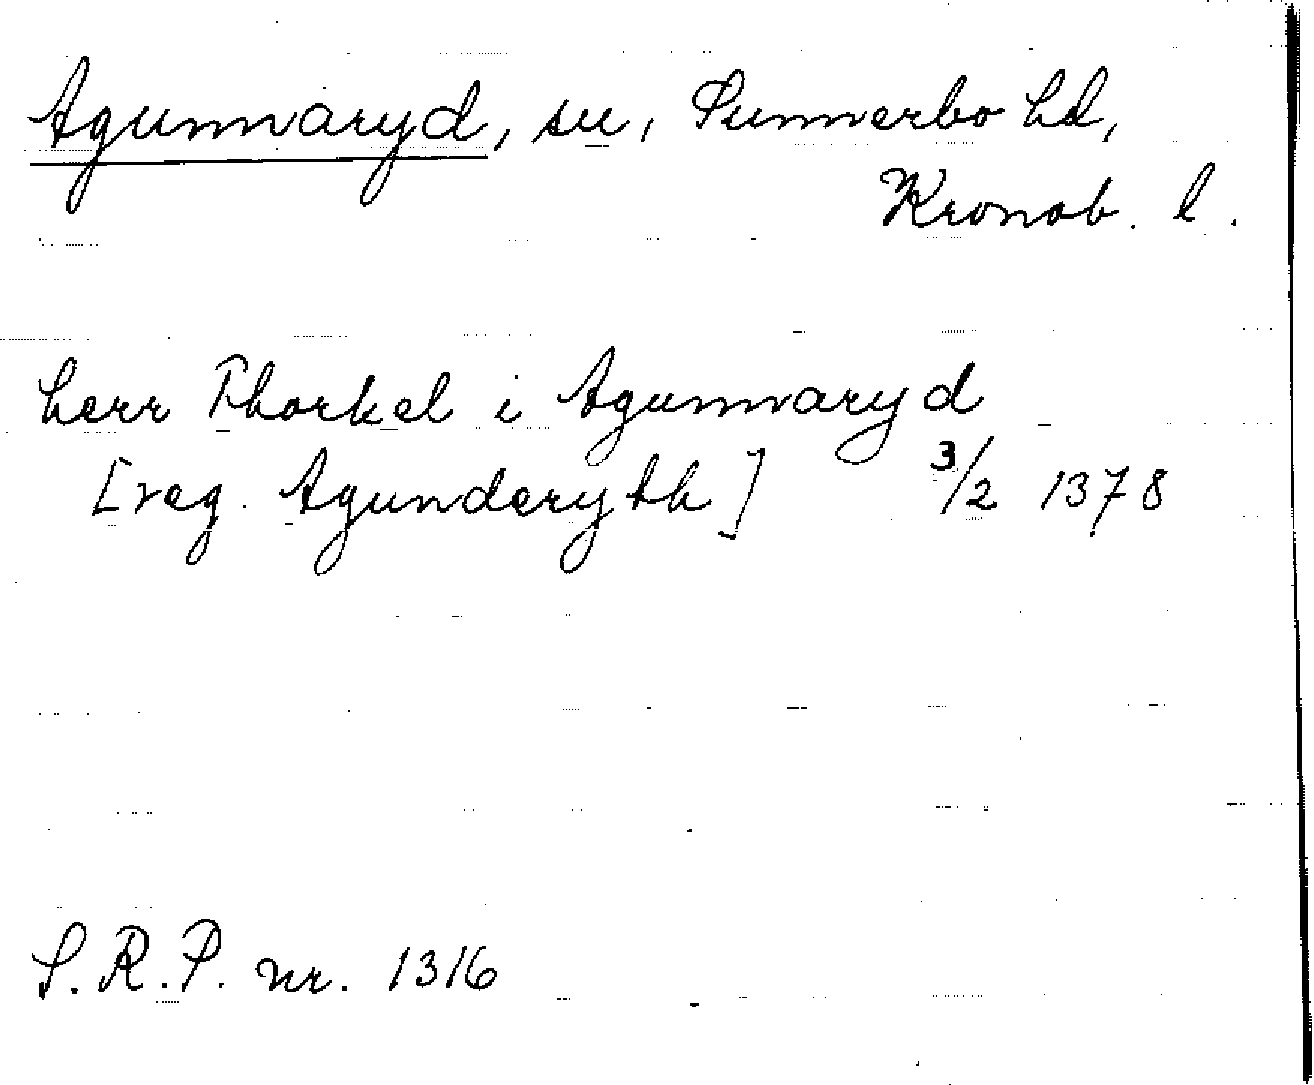 Agunnaryd, sn, Sunnerbo hd,
Kronob. l.
herr Thorkel i Agunnaryd
[reg. Agunderyth] 3/2 1378
S.R.P. nr. 1316